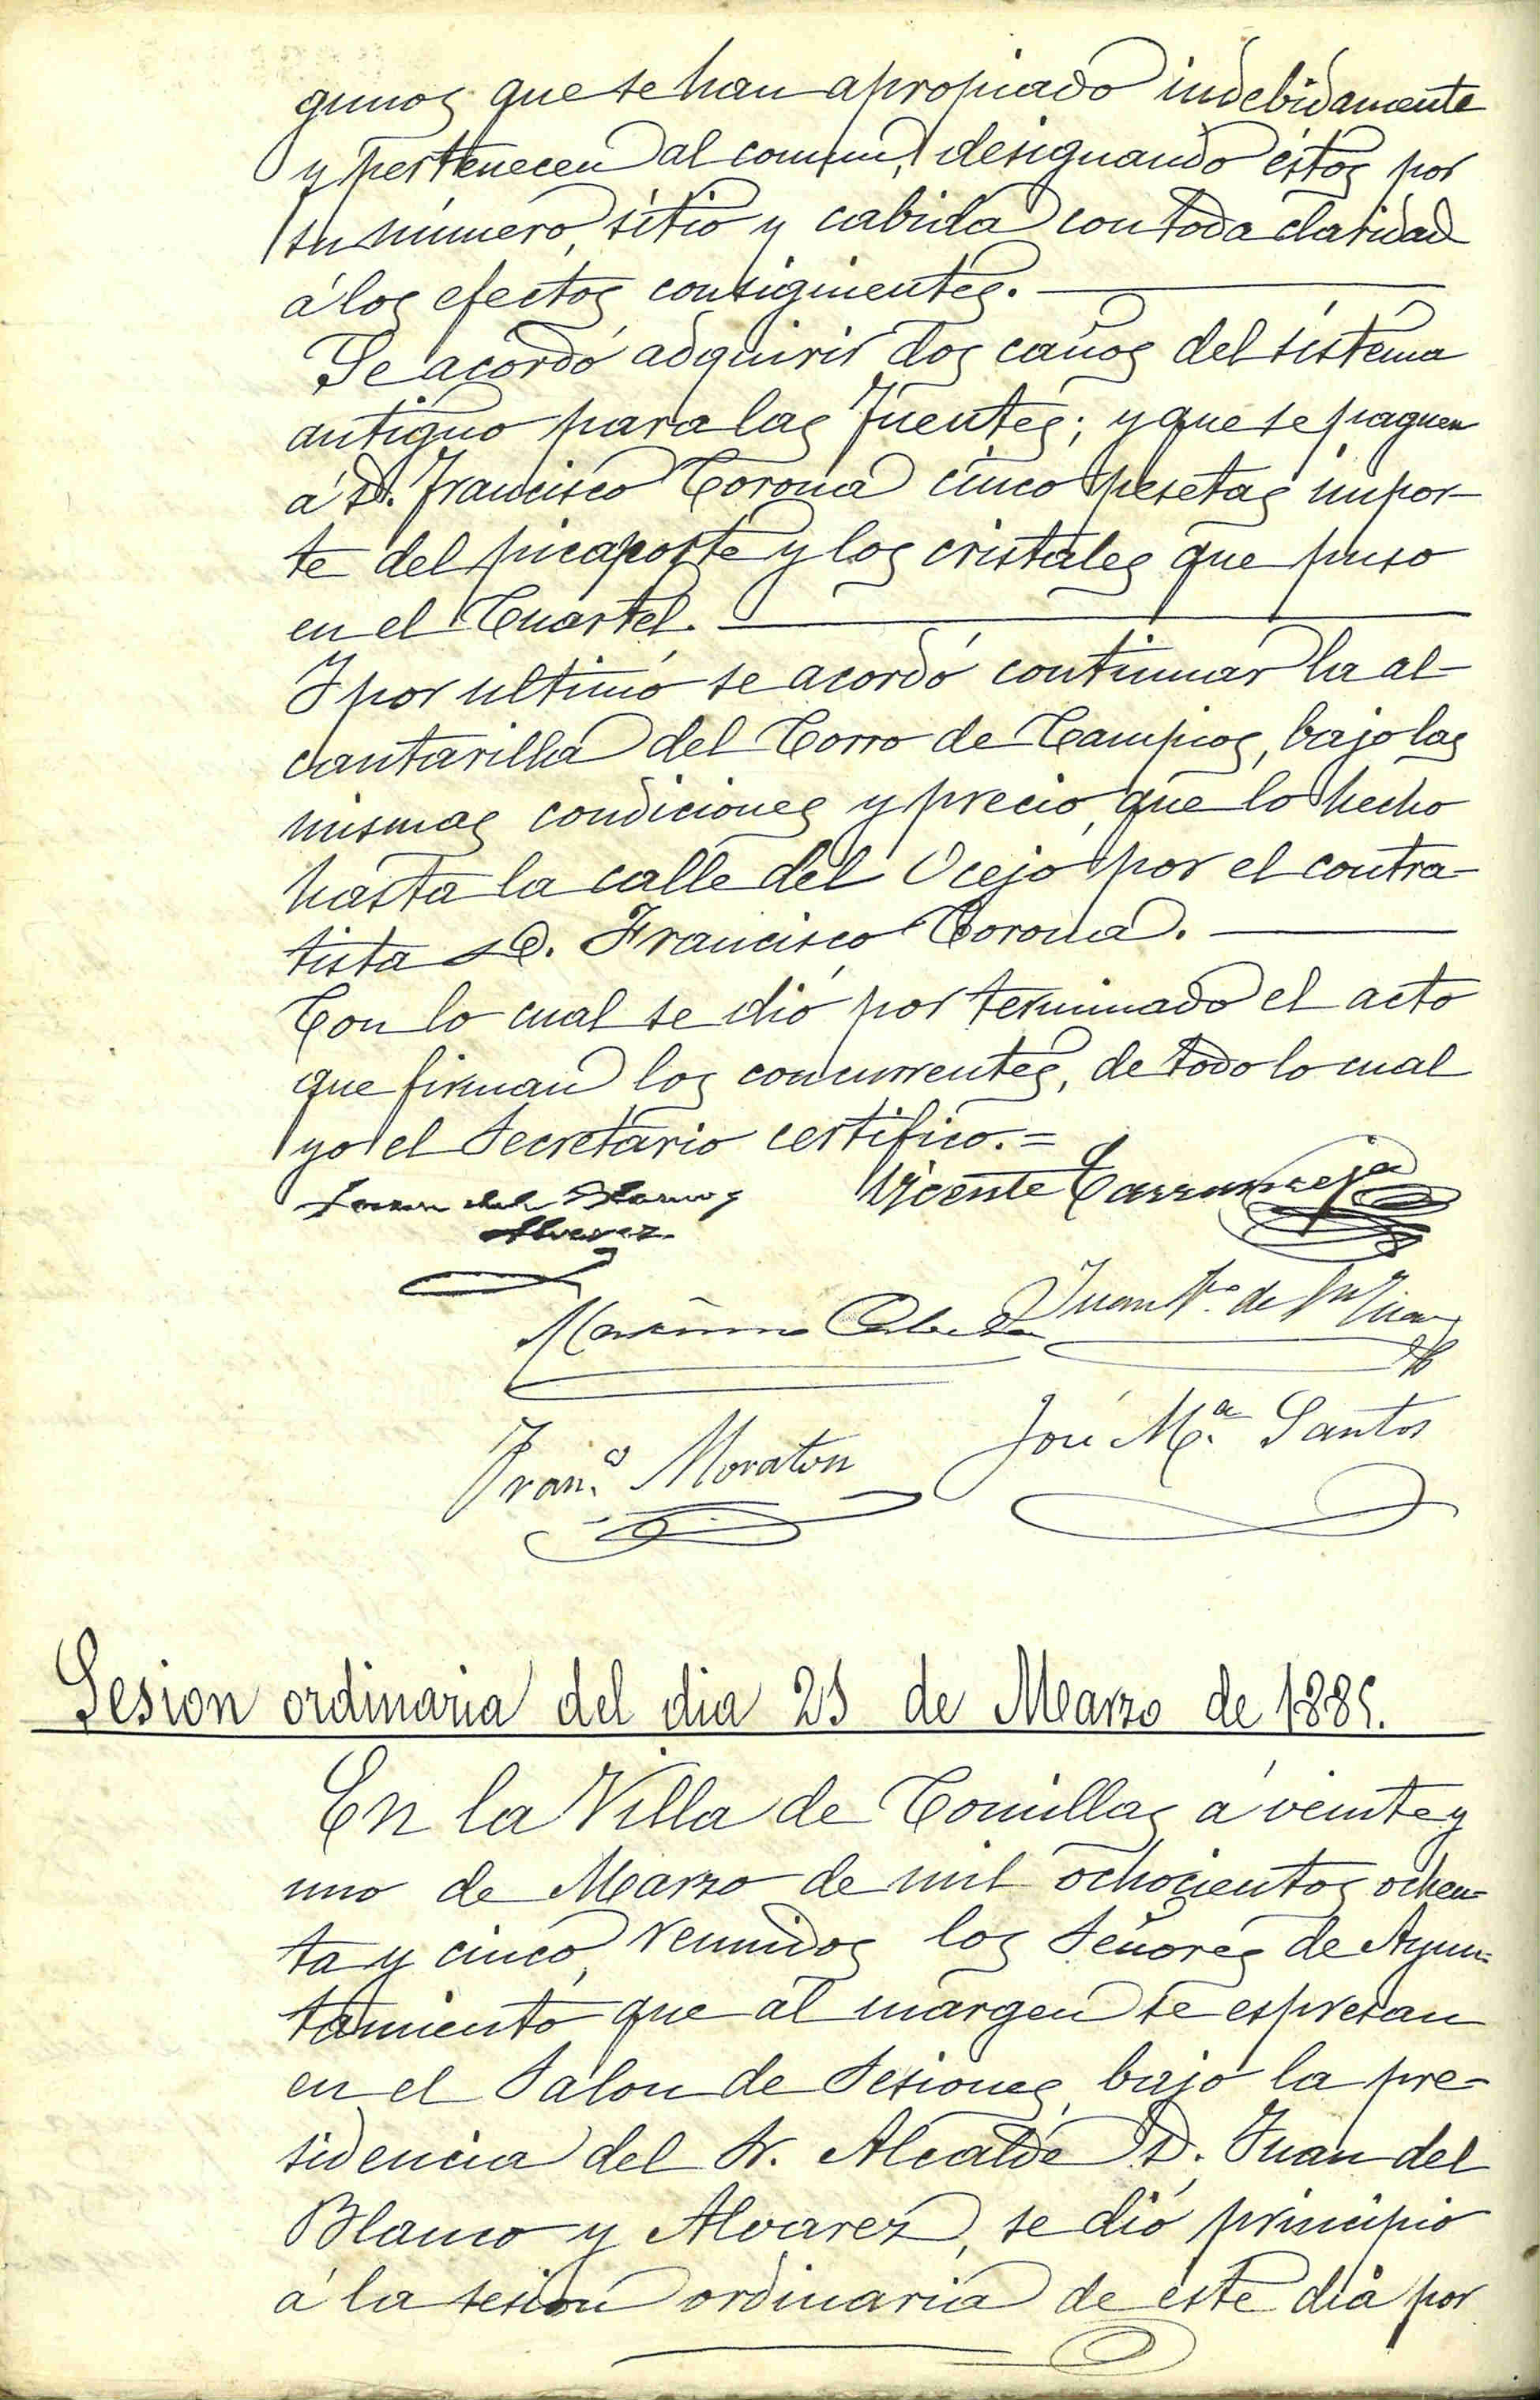 gunos que se han apropiado indebidamente
y pertenecen al comun, designando éstos por
su número, sitio y cabida con toda claridad
á los efectos consiguientes.
Se acordó adquirir dos caños del sistema
antiguo para las fuentes; y que se paguen
á D. Francisco Corona cinco pesetas impor-
te del picaporte y los cristales que puso
en el Cuartel.
Y por ultimo se acordó continuar la al-
cantarilla del Corro de Campios, bajo las
mismas condiciones y precio, que lo hecho
hasta la calle del Ocejo por el contra-
tista D. Francisco Corona.
Con lo cual se dió por terminado el acto
que firman los concurrentes, de todo lo cual
yo el Secretario certifico.=
Juan del Blanco y Vicente Carranceja
Alvarez
Maximo Juan N.º de
Fran.º Moraton José M.ª Santos
Sesion ordinaria del dia 21 de Marzo de 1885.
En la Villa de Comillas á veinte y
uno de Marzo de mil ochocientos ochen=
ta y cinco, reunidos los Señores de Ayun=
tamiento que al margen se espresan
en el Salon de Sesiones, bajo la pre-
sidencia del Sr. Alcalde D. Juan del
Blanco y Alvarez, se dió principio
á la sesion ordinaria de éste dia por